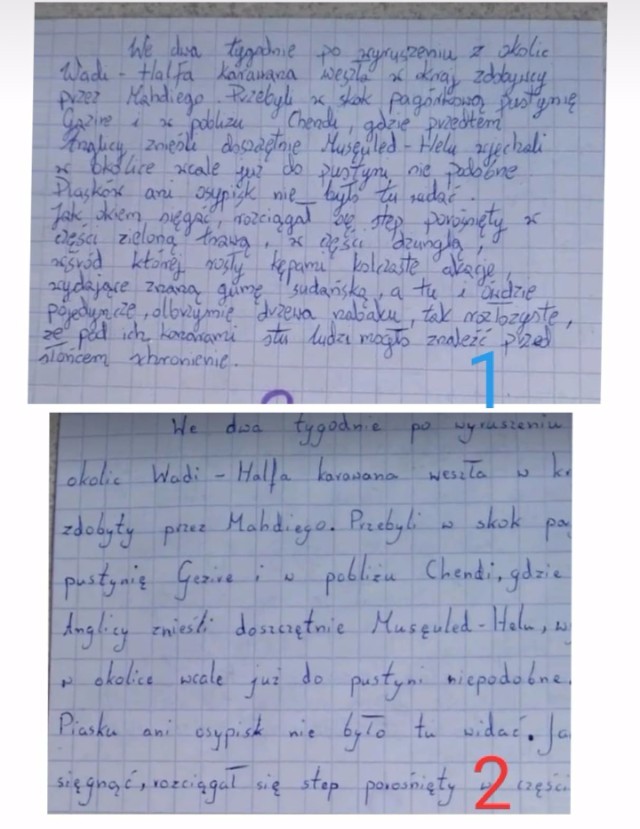 We dwa tygodnie po wyruszeniu z okolic
Wadi-Halfa karawana weszła w kraj zdobyty
przez Mahdiego. Przebyli w skok pagórkową pustynię
Gezire i w pobliżu Chendi, gdzie przedtem
Anglicy znieśli doszczętnie Musęuled-Helu wjechali
w okolice wcale już do pustyni nie podobne
Piasków ani osypisk nie było tu widać.
Jak okiem sięgąć, rozciągał się step porośnięty w
części zieloną trawą, w części dżunglą,
wśród której rosły kępami kolczaste akacje,
wydające znaną gumę sudańską, a tu i ówdzie
pojedyncze, olbrzymie drzewa nabaku, tak rozłożyste,
że pod ich konarami stu ludzi mogło znaleźć przed
słońcem schronienie.
1
We dwa tygodnie po wyruszeniu
okolic Wadi-Halfa karawana weszła w
zdobyty przez Mahdiego. Przebyli w skok
pustynię Gezire i w pobliżu Chendi, gdzie
Anglicy znieśli doszczętnie Musęuled-Helu,
w okolice wcale już do pustyni niepodobne.
Piasku ani osypisk nie było tu widać.
sięgnąć, rozciągał się step porośnięty w części
2